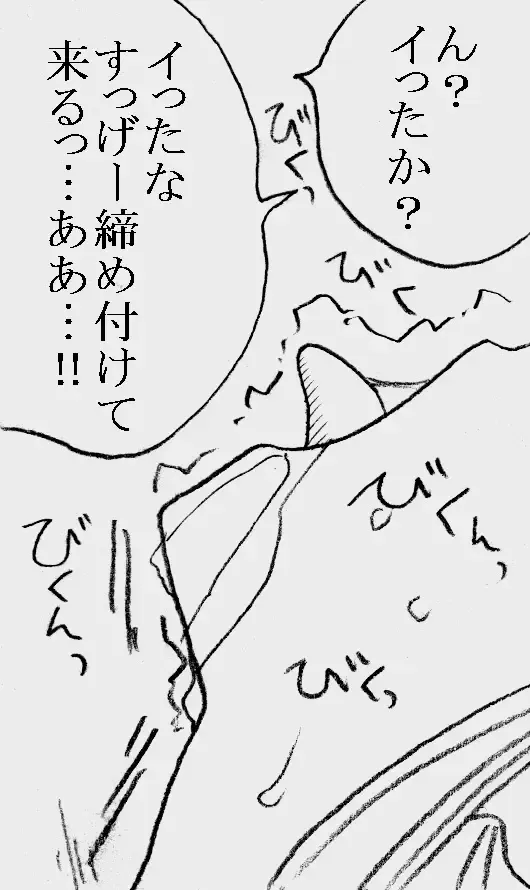 ん？
イったか？
イったな
すっげー締め付けて
来るっ…ああ…!!
びくっ
びく
びくんっ
びくんっ
びくっ